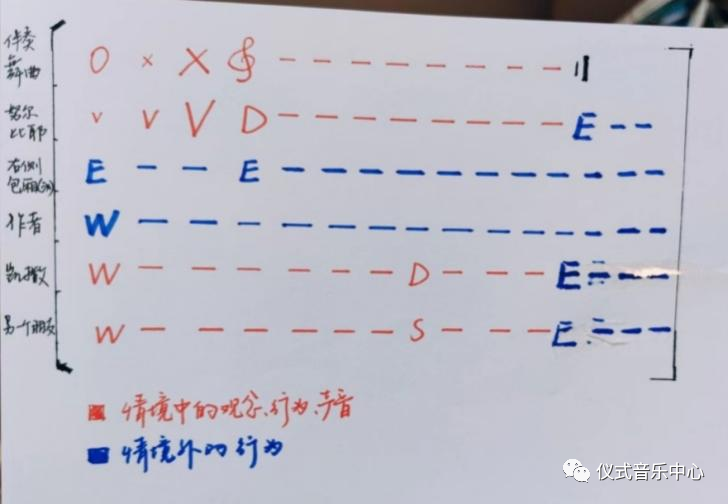 伴奏
舞曲 O × X 𝄞 – – – – – – – – – ‖
努尔
比耶 v v V D – – – – – – – – E – –
右侧
包厢(3人) E – – E – – – – – – – – – – –
作者 W – – – – – – – – – – – – – –
凯撒 W – – – – – – D – – – E – – –
另一个朋友 W – – – – – – S – – – E – – –
情境中的观念、行为、声音
情境外的行为
仪式音乐中心